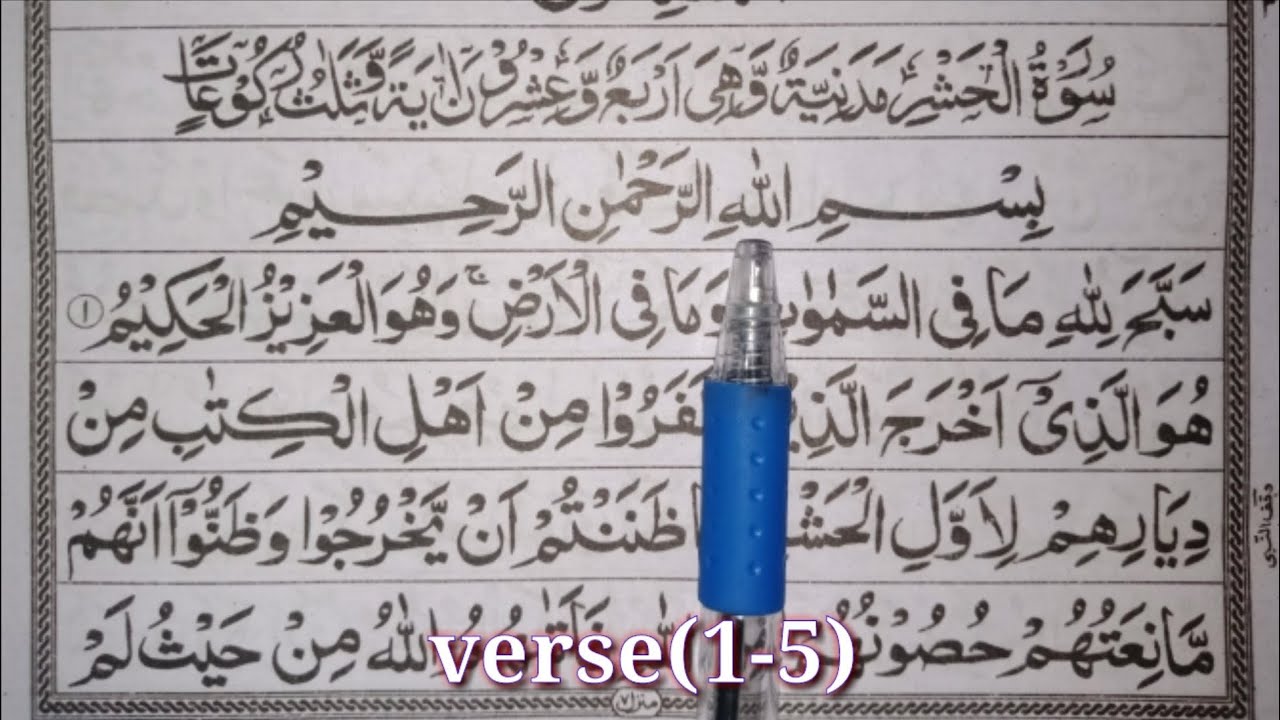 سُوْرَةُ الْحَشْرِ مَدَنِيَّةٌ وَّهِيَ اَرْبَعٌ وَّعِشْرُوْنَ اٰيَةً وَّثَلٰثُ رُكُوْعَاتٍ
بِسْمِ اللّٰهِ الرَّحْمٰنِ الرَّحِيْمِ
سَبَّحَ لِلّٰهِ مَا فِى السَّمٰوٰتِ وَمَا فِى الْاَرْضِ ۚ وَهُوَ الْعَزِيْزُ الْحَكِيْمُ ١
هُوَ الَّذِىْٓ اَخْرَجَ الَّذِيْنَ كَفَرُوْا مِنْ اَهْلِ الْكِتٰبِ مِنْ
دِيَارِهِمْ لِاَوَّلِ الْحَشْرِ ظَنَنْتُمْ اَنْ يَّخْرُجُوْا وَظَنُّوْٓا اَنَّهُمْ
مَّانِعَتُهُمْ حُصُوْنُهُمْ اللّٰهُ مِنْ حَيْثُ لَمْ
verse(1-5)
منزل ٧